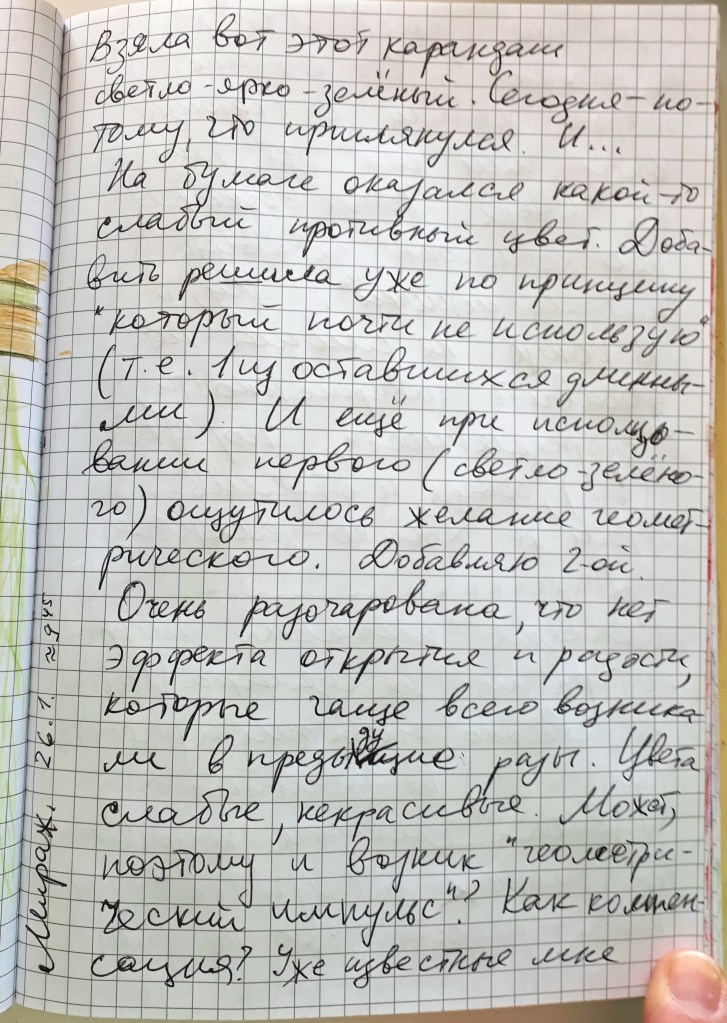 Взяла вот этот карандаш
светло-ярко-зелёный. Сегодня - по-
тому, что приглянулся. И...
На бумаге оказался какой-то
слабый противный цвет. Доба-
вить решила уже по принципу
"который почти не использую"
(т.е. 1 из оставшихся длинны-
ми). И ещё при исполь-
вании первого (светло-зелёно-
го) ощутилось желание геомет-
рического. Добавляю 2-ой.
Очень разочарована, что нет
эффекта открытия и радости,
которые чаще всего возника-
ли в предыдущие разы. Цвета
слабые, некрасивые. Может,
поэтому и возник "геометри-
ческий импульс"? Как компен-
сация? Уже известные мне
Мираж. 26.1. ≈9 45